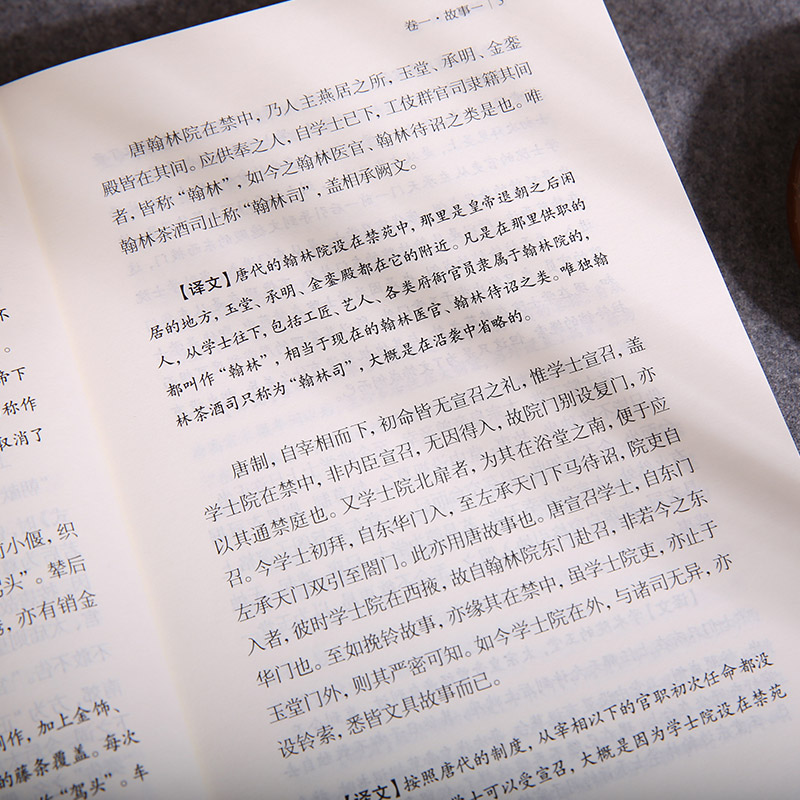 不
。
帝下
称作
取消了
小偃，织
驾头”。辇后
亦有销金
制作，加上金饰、
的藤条覆盖。每次
“驾头”。车
卷一·故事一 | 3
唐翰林院在禁中，乃人主燕居之所，玉堂、承明、金銮
殿皆在其间。应供奉之人，自学士已下，工伎群官司隶籍其间
者，皆称“翰林”，如今之翰林医官、翰林待诏之类是也。唯
翰林茶酒司止称“翰林司”，盖相承阙文。
【译文】唐代的翰林院设在禁苑中，那里是皇帝退朝之后闲
居的地方，玉堂、承明、金銮殿都在它的附近。凡是在那里供职的
人，从学士往下，包括工匠、艺人、各类府衙官员隶属于翰林院的，
都叫作“翰林”，相当于现在的翰林医官、翰林待诏之类。唯独翰
林茶酒司只称为“翰林司”，大概是在沿袭中省略的。
唐制，自宰相而下，初命皆无宣召之礼，惟学士宣召，盖
学士院在禁中，非内臣宣召，无因得入，故院门别设复门，亦
以其通禁庭也。又学士院北扉者，为其在浴堂之南，便于应
召。今学士初拜，自东华门入，至左承天门下马待诏，院吏自
左承天门双引至閤门。此亦用唐故事也。唐宣召学士，自东门
入者，彼时学士院在西掖，故自翰林院东门赴召，非若今之东
华门也。至如挽铃故事，亦缘其在禁中，虽学士院吏，亦止于
玉堂门外，则其严密可知。如今学士院在外，与诸司无异，亦
设铃索，悉皆文具故事而已。
【译文】按照唐代的制度，从宰相以下的官职初次任命都没
学士可以受宣召，大概是因为学士院设在禁苑